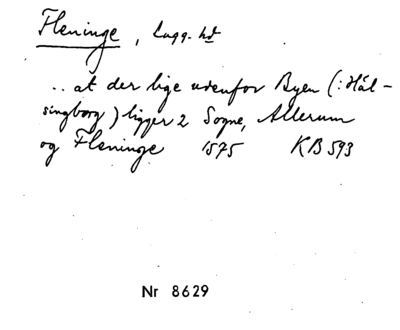 Fleninge, Lugg. hd
.. at der lige udenfor Byen (: Häl-
singborg) ligger 2 Sogne, Allerum
og Fleninge 1575 KB 593
Nr 8629